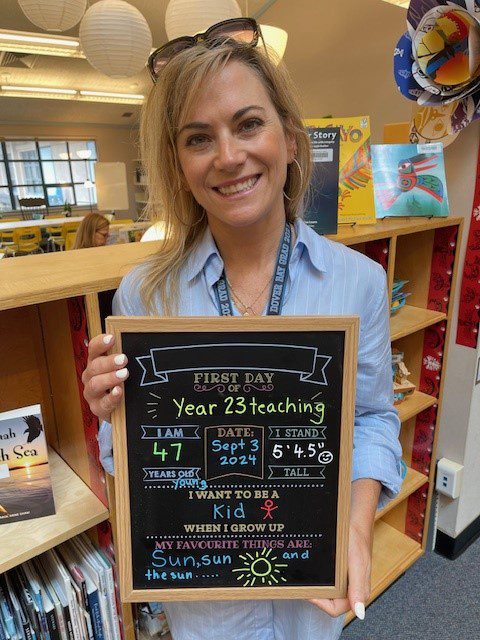 Story
DOVER BAY GRAD
FIRST DAY
OF
Year 23 teaching
I AM
47
YEARS OLD
young
DATE:
Sept 3
2024
I STAND
5'4.5"
TALL
I WANT TO BE A
Kid
WHEN I GROW UP
MY FAVOURITE THINGS ARE:
Sun, sun and
the sun.....
Sea